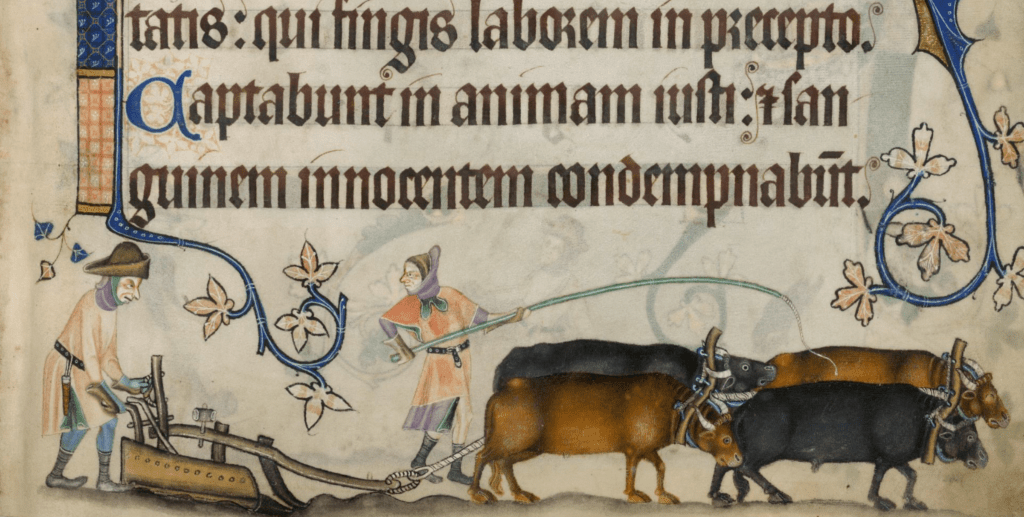 tatis: qui fingis laborem in precepto.
Captabunt in animam iusti: ⁊ san
guinem innocentem condempnabūt.